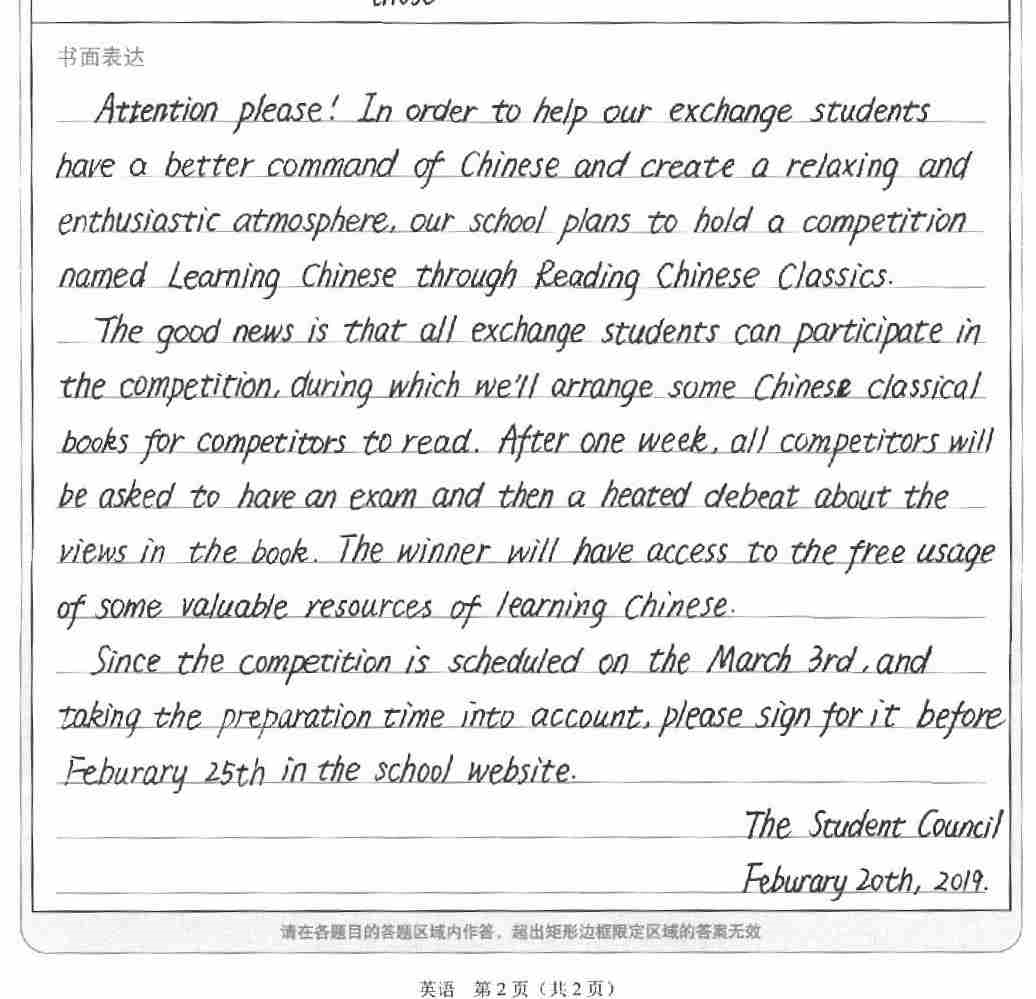 those
书面表达
Attention please! In order to help our exchange students
have a better command of Chinese and create a relaxing and
enthusiastic atmosphere, our school plans to hold a competition
named Learning Chinese through Reading Chinese Classics.
The good news is that all exchange students can participate in
the competition, during which we'll arrange some Chinese classical
books for competitors to read. After one week, all competitors will
be asked to have an exam and then a heated debeat about the
views in the book. The winner will have access to the free usage
of some valuable resources of learning Chinese.
Since the competition is scheduled on the March 3rd, and
taking the preparation time into account, please sign for it before
Feburary 25th in the school website.
The Student Council
Feburary 20th, 2019.
请在各题目的答题区域内作答，超出矩形边框限定区域的答案无效
英语 第2页（共2页）